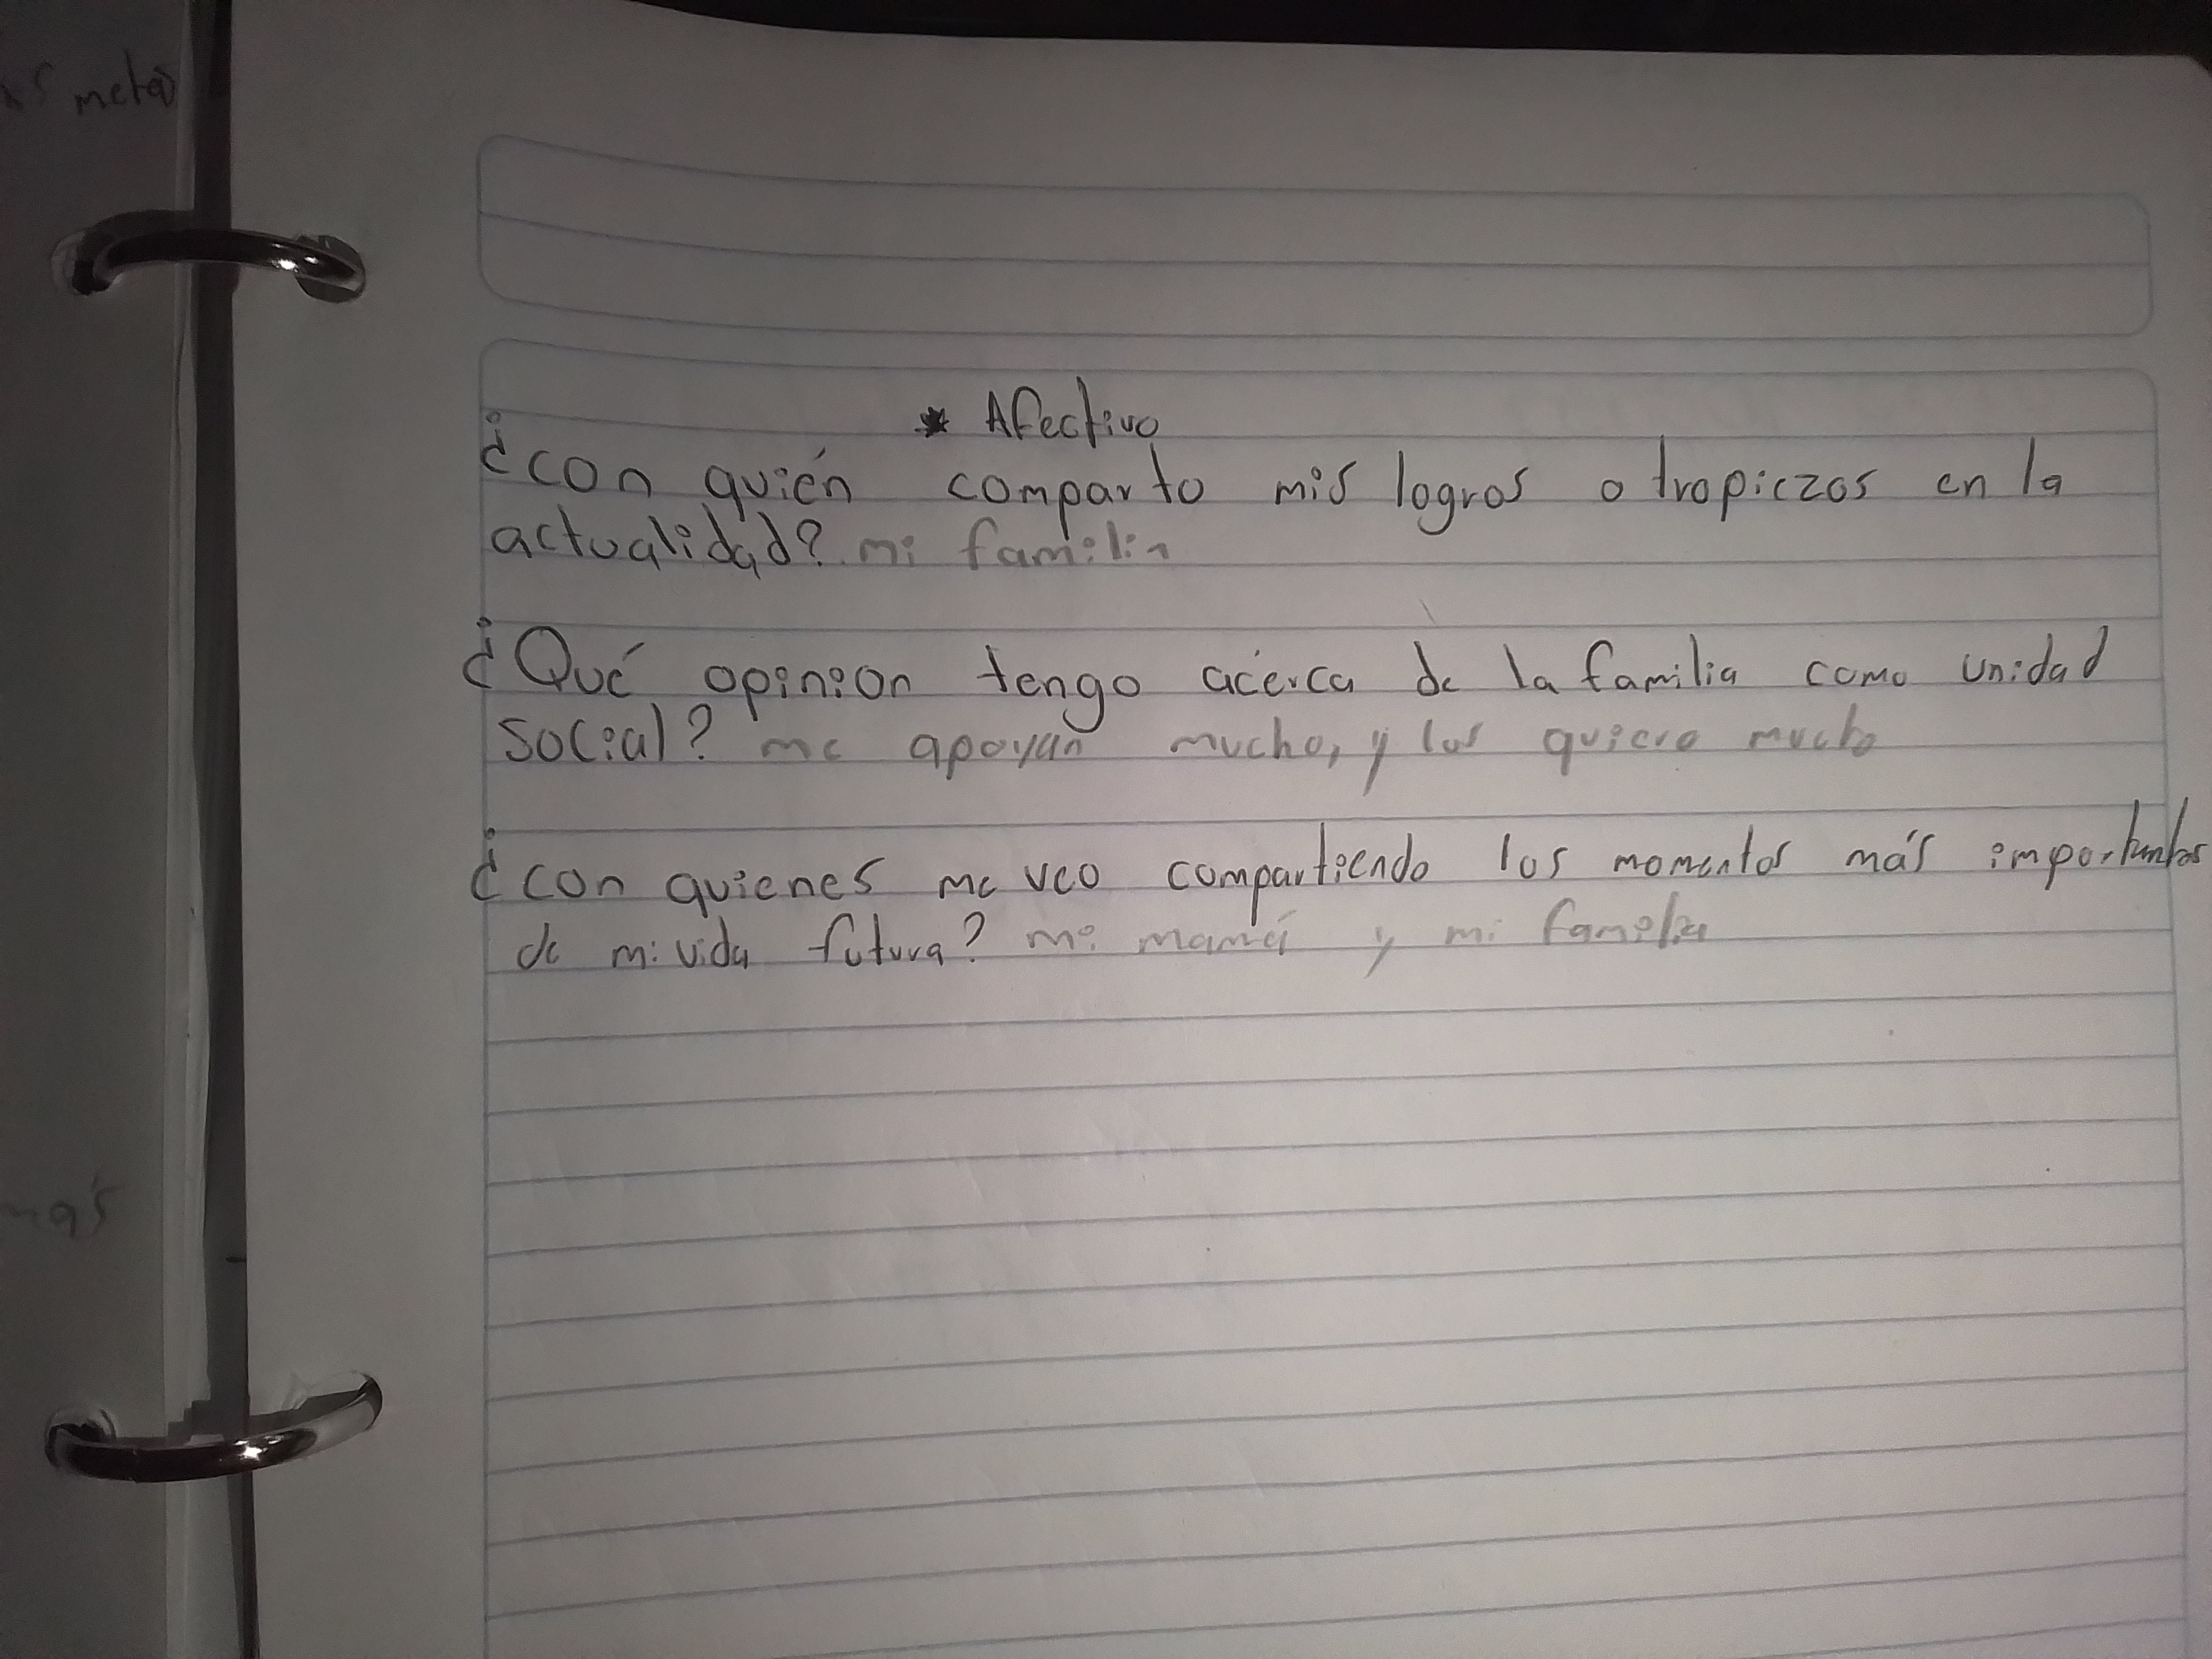 as metas
* Afectivo
¿con quién comparto mis logros o tropiezos en la
actualidad? mi familia
¿Qué opinion tengo acérca de la familia como unidad
social? me apoyan mucho, y los quiero mucho
¿con quienes me veo compartiendo los momentos más importantes
de mi vida futura? mi mamá y mi familia
más